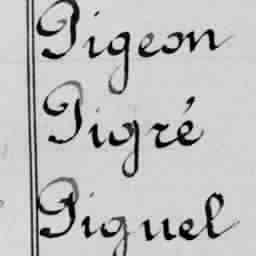 Pigeon
Pigré
Piguel